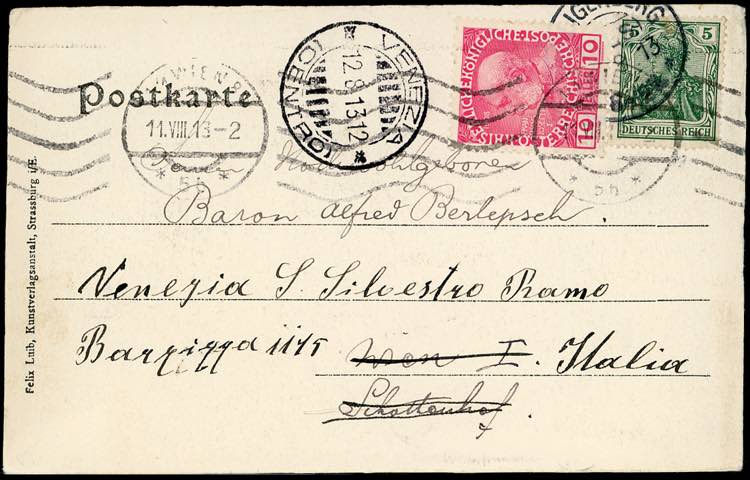 Postkarte
VENEZIA
12.8.13.12
(CENTRO)
WIEN
11.VIII.13-2
* 5h *
10 10
5 5
DEUTSCHES REICH
13
* 5h *
Hochwohlgeboren
Baron Alfred Berlepsch.
Venezia S. Silvestro Ramo
Barzizza 1175 Wien I. Italia
Schottenhof.
Felix Luib, Kunstverlagsanstalt, Strassburg i/E.